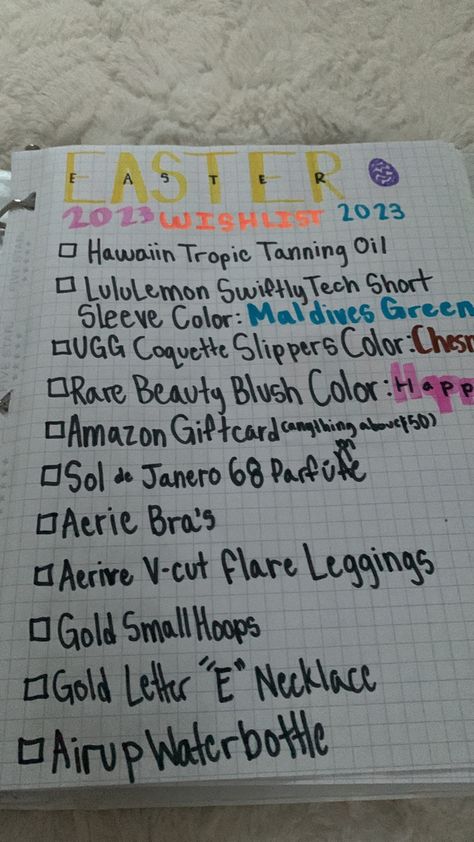 EASTER
EASTER
2023 WISHLIST 2023
Hawaiin Tropic Tanning Oil
LuluLemon Swiftly Tech Short
Sleeve Color: Maldives Green
UGG Coquette Slippers Color: Chesn
Rare Beauty Blush Color: Happ
Amazon Giftcard (anything above $50)
Sol de Janero 68 Parfum
Aerie Bra's
Aerive V-cut flare Leggings
Gold Small Hoops
Gold Letter "E" Necklace
Airup Waterbottle